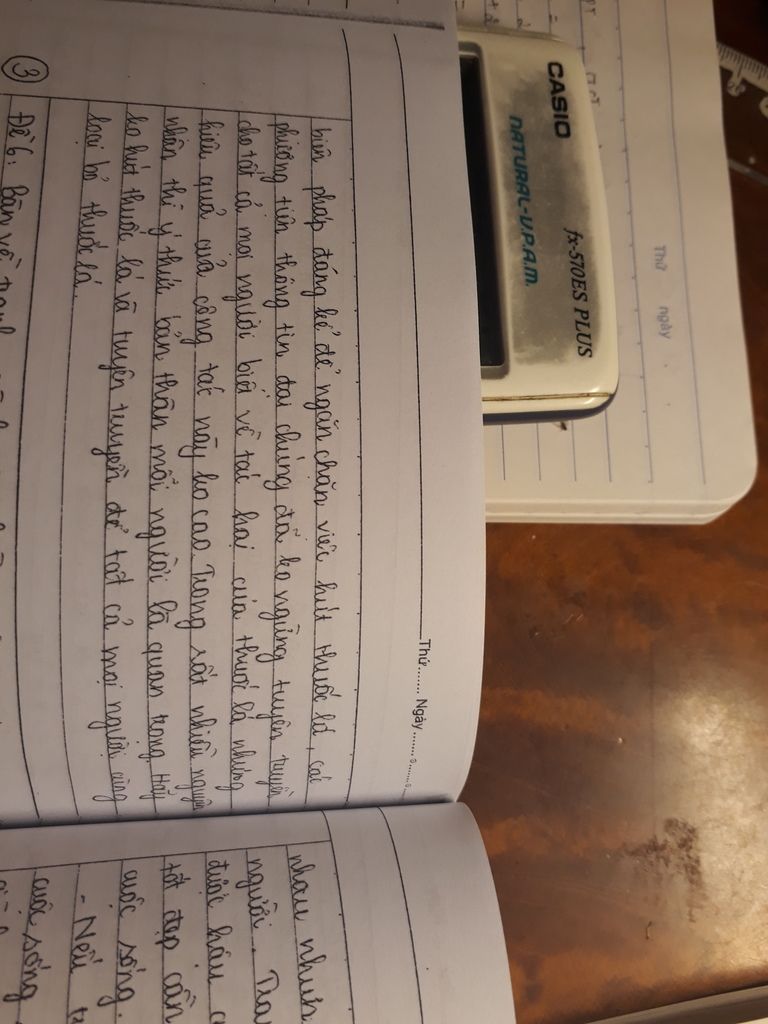 Thứ....... Ngày.......
biện pháp đáng kể để ngăn chặn việc hút thuốc lá, các
phương tiện thông tin đại chúng đã ko ngừng tuyên truyền
cho tất cả mọi người biết về tác hại của thuốc lá nhưng
hiệu quả của công tác này ko cao. Trong rất nhiều nguyên
nhân thì ý thức bản thân mỗi người là quan trọng. Hãy
ko hút thuốc lá và tuyên truyền để tất cả mọi người cùng
loại bỏ thuốc lá.
③
Đề 6: Bàn về
nhau nhưng
người.
được hầu
tốt đẹp cần
cuộc sống.
- Nếu
cuộc sống
CASIO
fx-570ES PLUS
NATURAL-V.P.A.M.
Thứ ngày